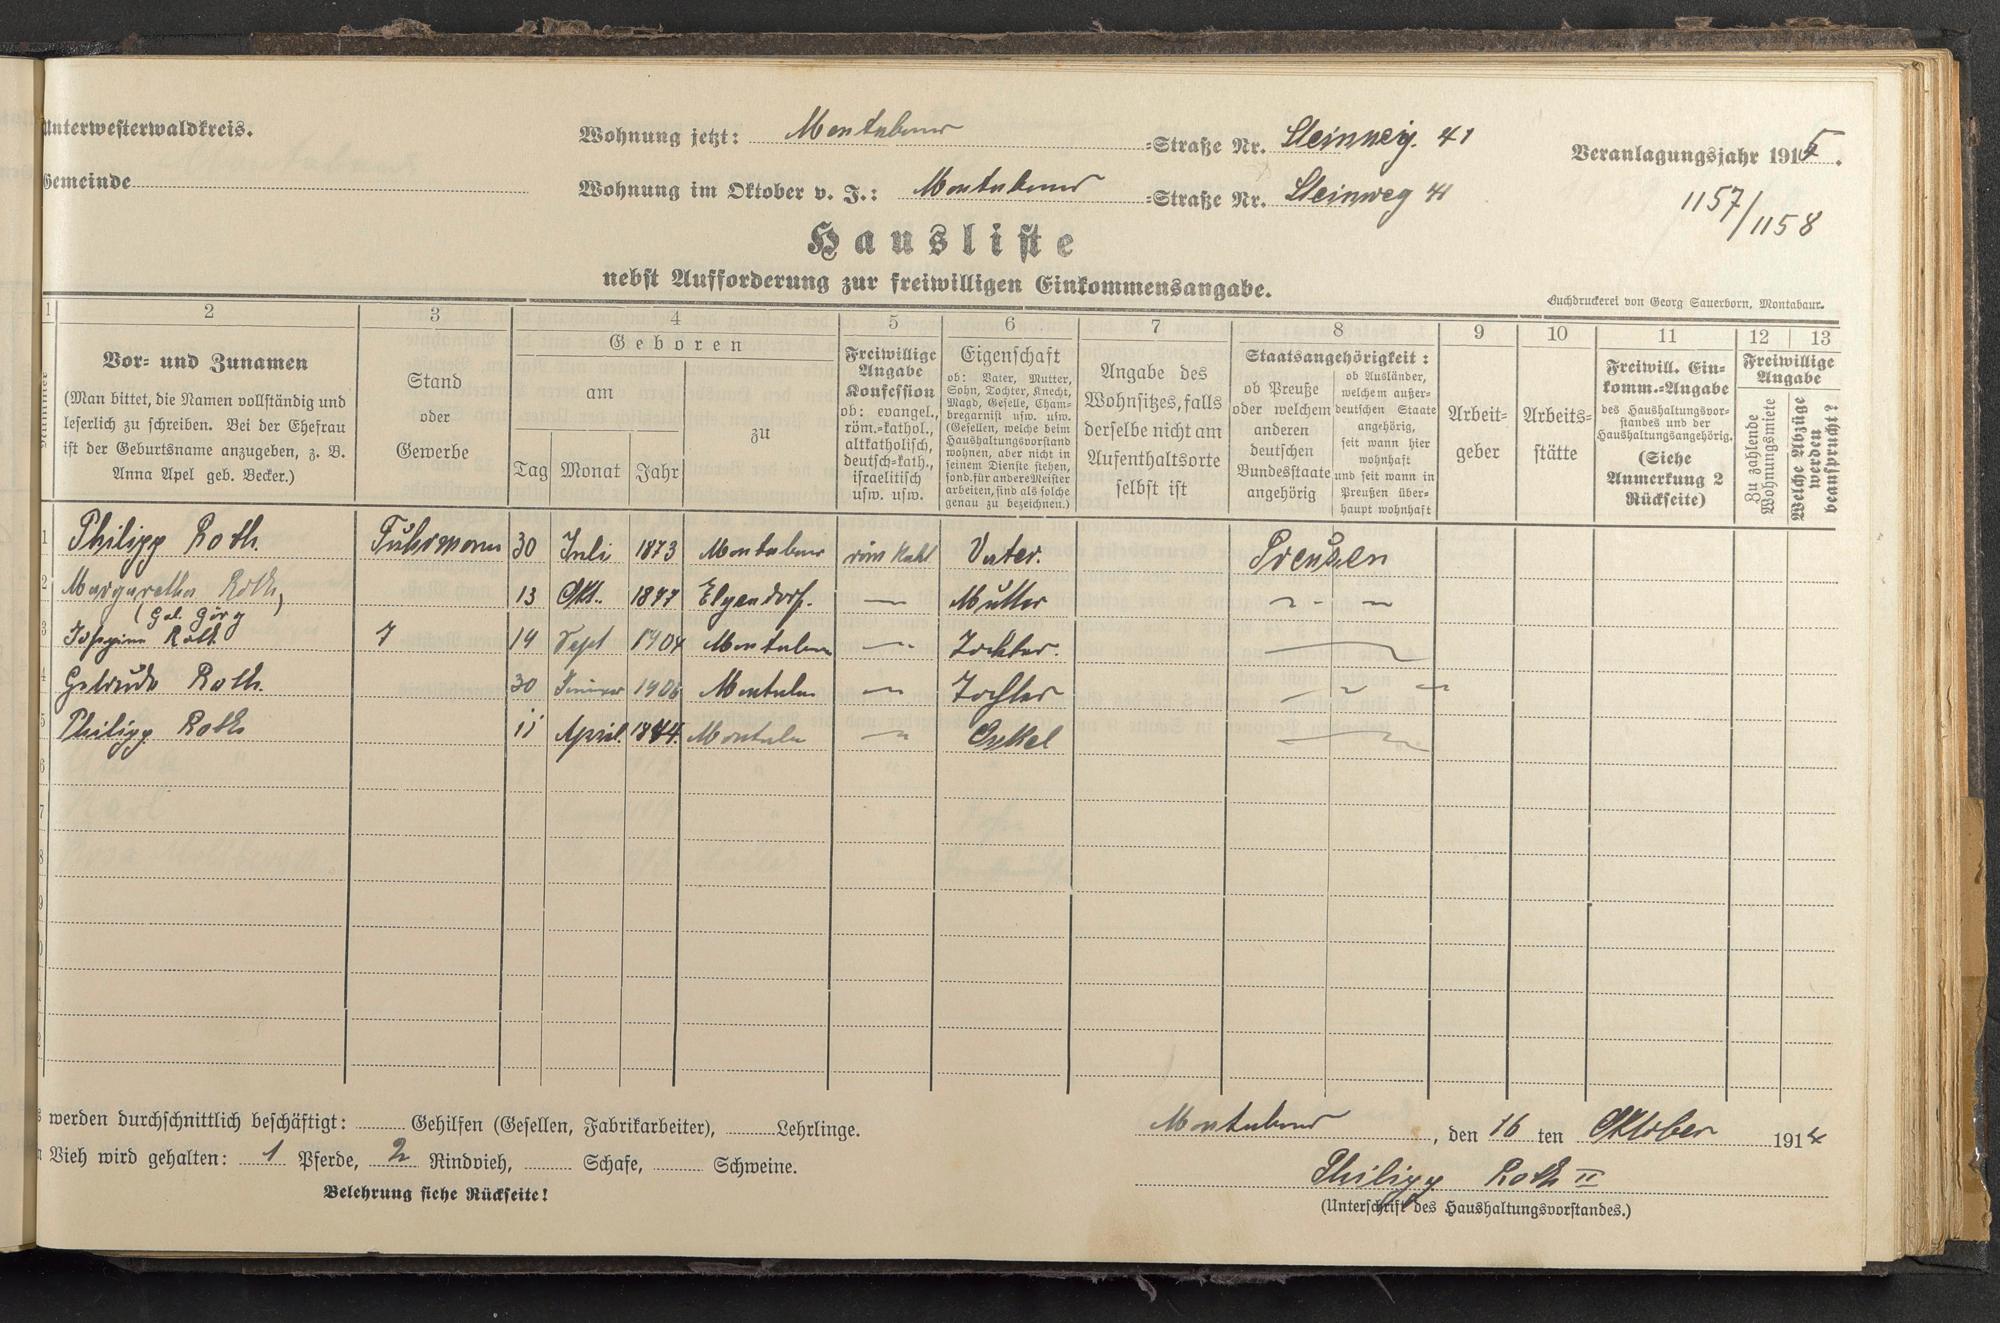 Unterwesterwaldkreis.
Gemeinde
Wohnung jetzt: Montabaur -Straße Nr. Steinweg. 41
Wohnung im Oktober v. J.: Montabaur -Straße Nr. Steinweg 41
Veranlagungsjahr 1915.
1157/1158
Hausliste
nebst Aufforderung zur freiwilligen Einkommensangabe.
Buchdruckerei von Georg Sauerborn, Montabaur.
1 2 3 4 5 6 7 8 9 10 11 12 13
Nummer
Vor- und Zunamen
(Man bittet, die Namen vollständig und
leserlich zu schreiben. Bei der Ehefrau
ist der Geburtsname anzugeben, z. B.
Anna Apel geb. Becker.)
Stand
oder
Gewerbe
Geboren
am
Tag Monat Jahr
zu
Freiwillige
Angabe
Konfession
ob: evangel.,
röm.-kathol.,
altkatholisch,
deutsch-kath.,
israelitisch
usw. usw.
Eigenschaft
ob: Vater, Mutter,
Sohn, Tochter, Knecht,
Magd, Geselle, Cham-
bregarnist usw. usw.
(Gesellen, welche beim
Haushaltungsvorstand
wohnen, aber nicht in
seinem Dienste stehen,
sond. für andere Meister
arbeiten, sind als solche
genau zu bezeichnen.)
Angabe des
Wohnsitzes, falls
derselbe nicht am
Aufenthaltsorte
selbst ist
Staatsangehörigkeit:
ob Preuße
oder welchem
anderen
deutschen
Bundesstaate
angehörig
ob Ausländer,
welchem außer-
deutschen Staate
angehörig,
seit wann hier
wohnhaft
und seit wann in
Preußen über-
haupt wohnhaft
Arbeit-
geber
Arbeits-
stätte
Freiwill. Ein-
komm.-Angabe
des Haushaltungsvor-
standes und der
Haushaltungsangehörig.
(Siehe
Anmerkung 2
Rückseite)
Freiwillige
Angabe
Zu zahlende
Wohnungsmiete
Welche Abzüge
werden
beansprucht?
1 Philipp Roth. Fuhrmann 30 Juli 1873 Montabaur röm Kath Vater. Preußen
2 Margaretha Roth, 13 Okt. 1877 Elgendorf. — Mutter
(Geb. Görg
3 Josefine Roth 14 Sept 1904 Montabaur — Tochter.
4 Gertrude Roth. 30 Januar 1906 Montabaur — Tochter
5 Philipp Roth 11 April. 1844. Montabaur — Onkel
6
7
8
9
0
1
2
werden durchschnittlich beschäftigt: Gehilfen (Gesellen, Fabrikarbeiter), Lehrlinge.
Vieh wird gehalten: 1 Pferde, 2 Rindvieh, Schafe, Schweine.
Belehrung siehe Rückseite!
Montabaur, den 16 ten Oktober 1914
Philipp Roth II
(Unterschrift des Haushaltungsvorstandes.)